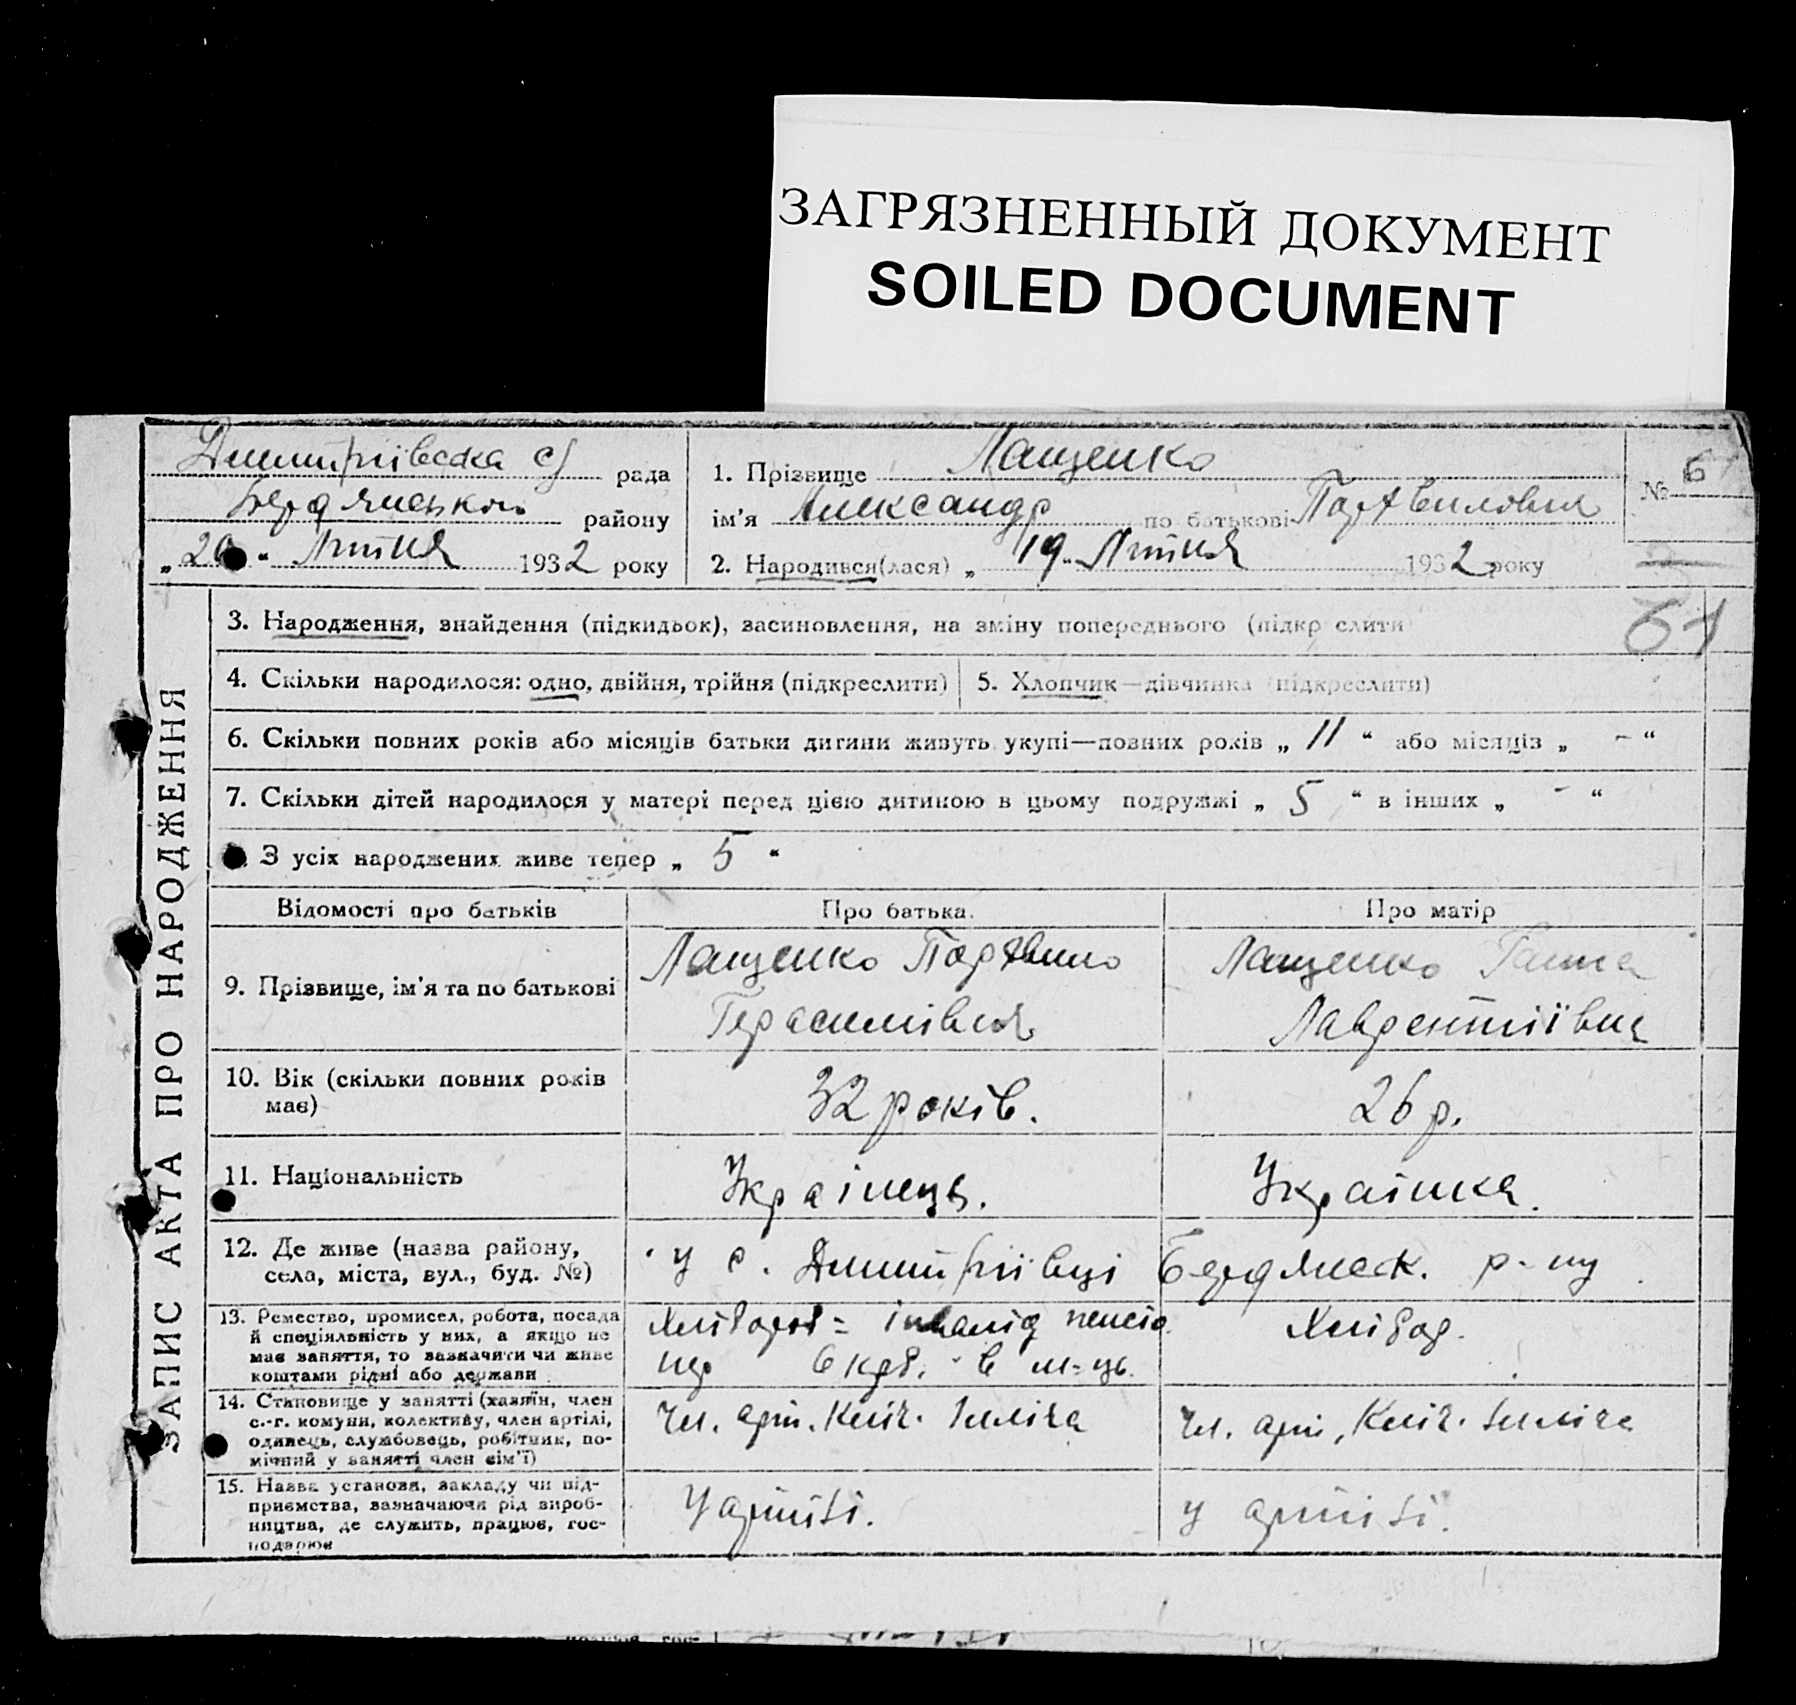 ЗАГРЯЗНЕННЫЙ ДОКУМЕНТ
SOILED DOCUMENT
Дмитріівська с/ рада
Бердянського району
„ 20 “ Липня 1932 року
1. Прізвище Лащенко
ім’я Александр по батькові
2. Народився(лася) „ 19 “ Липня 1932 року
№ 61
61
ЗАПИС АКТА ПРО НАРОДЖЕННЯ
3. Народження, знайдення (підкидьок), засиновлення, на зміну попереднього (підкр слити
4. Скільки народилося: одно, двійня, трійня (підкреслити)
5. Хлопчик—дівчинка (підкреслити)
6. Скільки повних років або місяців батьки дитини живуть укупі—повних років „ 11 “ або місяців „ - “
7. Скільки дітей народилося у матері перед цією дитиною в цьому подружжі „ 5 “ в інших „ - “
З усіх народжених живе тепер „ 5 “
Відомості про батьків
Про батька
Про матір
9. Прізвище, ім’я та по батькові
Лащенко
Герасимівич
Лащенко Ганна
Лаврентіївна
10. Вік (скільки повних років
має)
32 років.
26 р.
11. Національність
Українець.
Українка.
12. Де живе (назва району,
села, міста, вул., буд. №)
у с. Дмитріівці Бердянск. р-ну
13. Ремество, промисел, робота, посада
й спеціяльність у них, а якщо не
має заняття, то зазначити чи живе
коштами рідні або держави
Хлібороб = інвалід пенсіо
нер 6 крб. в м-ць.
Хлібор.
14. Становище у занятті (хазяїн, член
с.-г. комуни, колективу, член артілі,
одинець, службовець, робітник, по-
мічний у занятті член сім’ї)
Чл. арт. Ілліча
Чл. арт. Ілліча
15. Назва установи, закладу чи під-
приємства, зазначаючи рід вироб-
ництва, де служить, працює, гос-
подарює
У артілі.
у артілі.